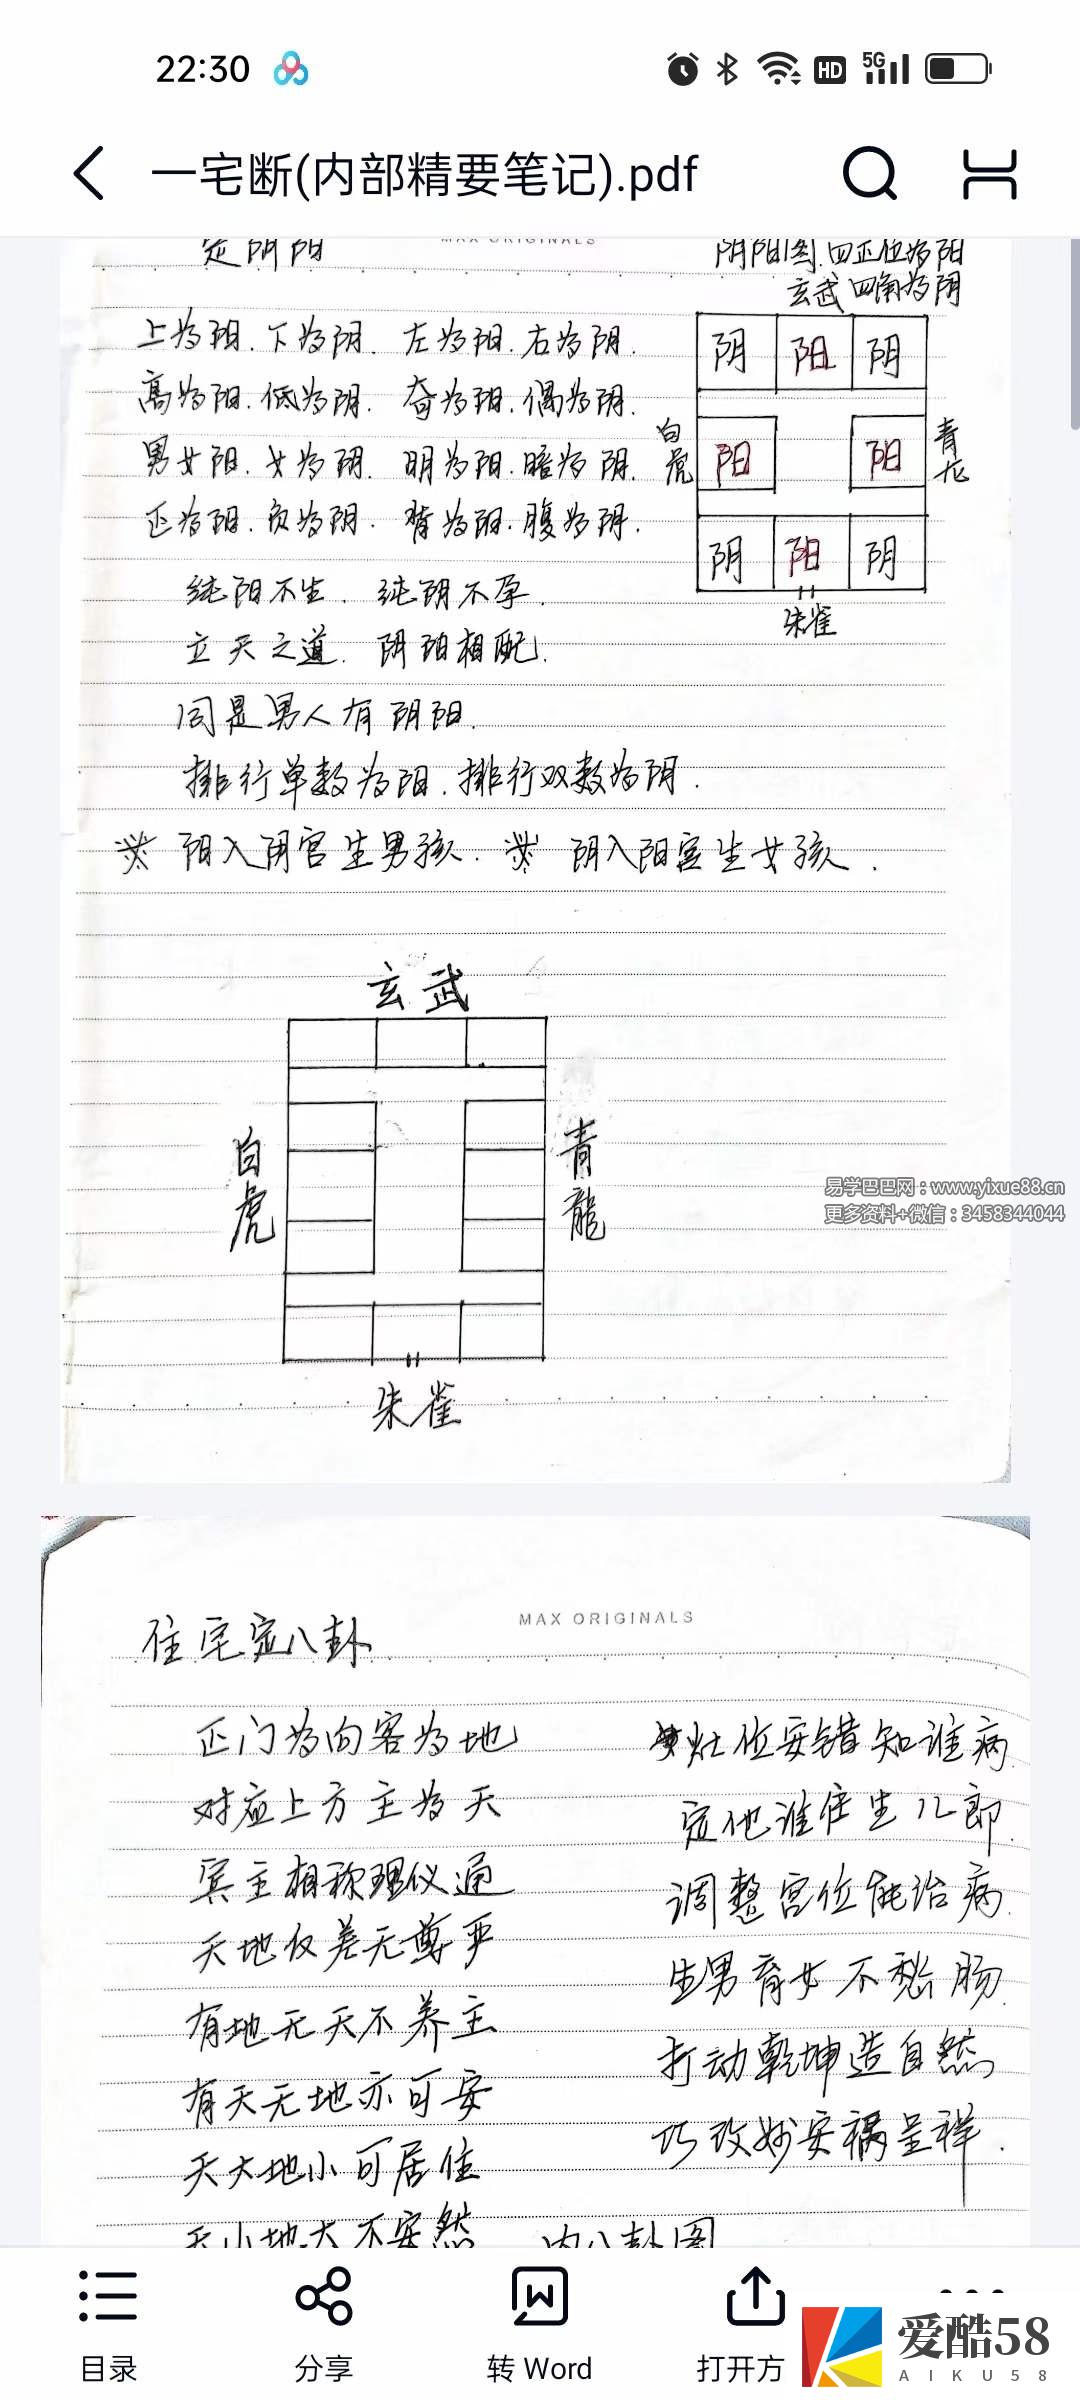 22:30
HD 5G
一宅断(内部精要笔记).pdf
定阴阳
MAX ORIGINALS
阴阳图.四正位为阳
玄武四角为阴
上为阳.下为阴.左为阳.右为阴.
高为阳.低为阴.奇为阳.偶为阴.
男女阳.女为阴.明为阳.暗为阴.
正为阳.负为阴.背为阳.腹为阴.
纯阳不生.纯阴不孕.
立天之道.阴阳相配.
同是男人有阴阳.
排行单数为阳.排行双数为阴.
阳入阴宫生男孩.阴入阳宫生女孩.
阴 阳 阴
白虎 阳 阳 青龙
阴 阳 阴
朱雀
玄武
白虎
青龍
朱雀
易学巴巴网：www.yixue88.cn
更多资料+微信：3458344044
MAX ORIGINALS
住宅定八卦
正门为向客为地
对应上方主为天
宾主相称理仪通
天地仅差无尊严
有地无天不养主
有天无地亦可安
天大地小可居住
天小地大不安然
灶位安错知谁病
定他谁住生儿郎.
调整宫位能治病.
生男育女不愁肠.
打动乾坤造自然
巧改妙安祸呈祥.
内八卦图
目录
分享
转 Word
打开方
爱酷58
AIKU58